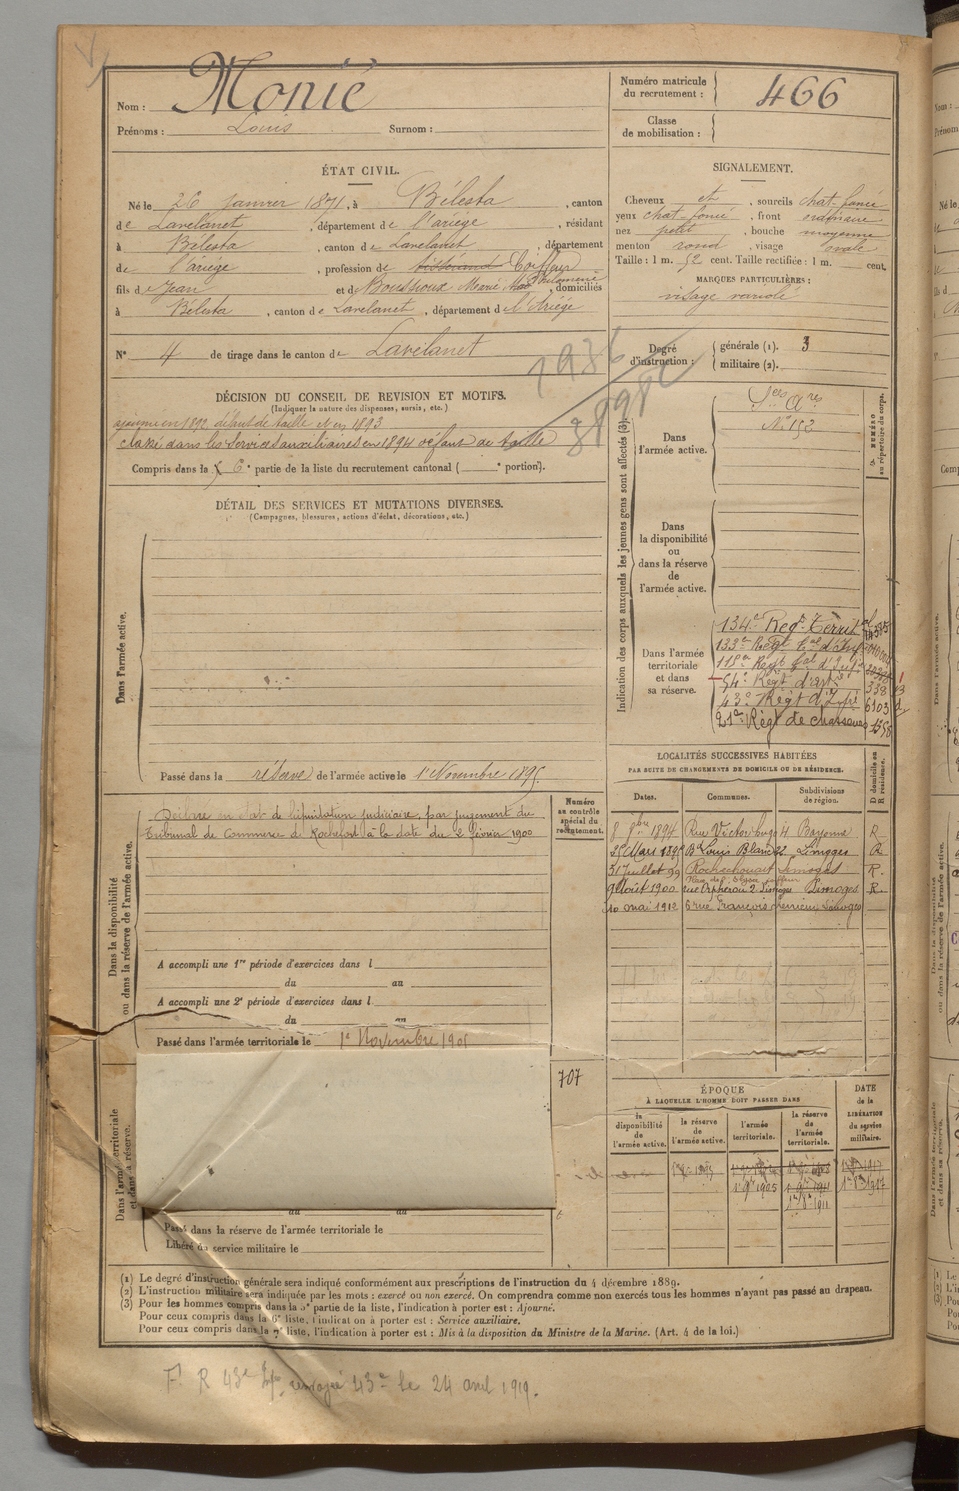 Nom : Monié
Prénoms : Louis Surnom :
Numéro matricule du recrutement : 466
Classe de mobilisation :
ÉTAT CIVIL.
Né le 26 janvier 1871, à Bélesta, canton
de Lavelanet, département de l'ariège, résidant
à Bélesta, canton de Lavelanet, département
de l'ariège, profession de tisserand Coiffeur
fils de Jean et de Boussioux Marie Philomène, domiciliés
à Bélesta, canton de Lavelanet, département de l'Ariège
N° 4 de tirage dans le canton de Lavelanet
SIGNALEMENT.
Cheveux et, sourcils chat-foncé
yeux chat-foncé, front ordinaire
nez petit, bouche moyenne
menton rond, visage ovale
Taille : 1 m. 52 cent. Taille rectifiée : 1 m. cent.
MARQUES PARTICULIÈRES :
visage variolé
Degré d'instruction : générale (1). 3
militaire (2).
1936
DÉCISION DU CONSEIL DE REVISION ET MOTIFS.
(Indiquer la nature des dispenses, sursis, etc.)
ajourné en 1892 défaut de taille et en 1893
classé dans les Services auxiliaires en 1894 défaut de taille
Compris dans la 6e partie de la liste du recrutement cantonal ( e portion).
DÉTAIL DES SERVICES ET MUTATIONS DIVERSES.
(Campagnes, blessures, actions d'éclat, décorations, etc.)
Dans l'armée active.
Passé dans la réserve de l'armée active le 1er Novembre 1895
Indication des corps auxquels les jeunes gens sont affectés (3).
NUMÉRO au répertoire du corps.
Dans l'armée active.
N° 152
Dans la disponibilité ou dans la réserve de l'armée active.
Dans l'armée territoriale et dans sa réserve.
134e Regt Territ
133e Régt
118e Régt
54e Régt d'art 338
43e Régt d'Infie 6103
21e Régt de chasseurs
LOCALITÉS SUCCESSIVES HABITÉES
PAR SUITE DE CHANGEMENTS DE DOMICILE OU DE RÉSIDENCE.
Dates. Communes. Subdivisions de région. D domicile ou R résidence.
8 8bre 1894 Rue Victor hugo 4 Bayonne R
Mars 1895 Bd Louis Blanc 22 Limoges R
31 Juillet 99 Rochechouart Limoges R.
9 Août 1900 2 Limoges Limoges R.
10 mai 1912 6 rue François Limoges
Dans la disponibilité ou dans la réserve de l'armée active.
Numéro au contrôle spécial du recrutement.
Déclaré en état de liquidation judiciaire, par jugement du
Tribunal de Commerce de Rochefort à la date du 2 février 1900
A accompli une 1re période d'exercices dans l
du au
A accompli une 2e période d'exercices dans l
du au
Passé dans l'armée territoriale le 1er Novembre 190
707
Dans l'armée territoriale et dans sa réserve.
du au
Passé dans la réserve de l'armée territoriale le
Libéré du service militaire le
ÉPOQUE
À LAQUELLE L'HOMME DOIT PASSER DANS
la disponibilité de l'armée active. la réserve de l'armée active. l'armée territoriale. la réserve de l'armée territoriale. DATE de la LIBÉRATION du service militaire.
1er 9bre 1895
1er 9re 1905
1er 8bre 1911
(1) Le degré d'instruction générale sera indiqué conformément aux prescriptions de l'instruction du 4 décembre 1889.
(2) L'instruction militaire sera indiquée par les mots : exercé ou non exercé. On comprendra comme non exercés tous les hommes n'ayant pas passé au drapeau.
(3) Pour les hommes compris dans la 5e partie de la liste, l'indication à porter est : Ajourné.
Pour ceux compris dans la 6e liste, l'indication à porter est : Service auxiliaire.
Pour ceux compris dans la 7e liste, l'indication à porter est : Mis à la disposition du Ministre de la Marine. (Art. 4 de la loi.)
R 43e renvoyé 43e le 24 avril 1919.